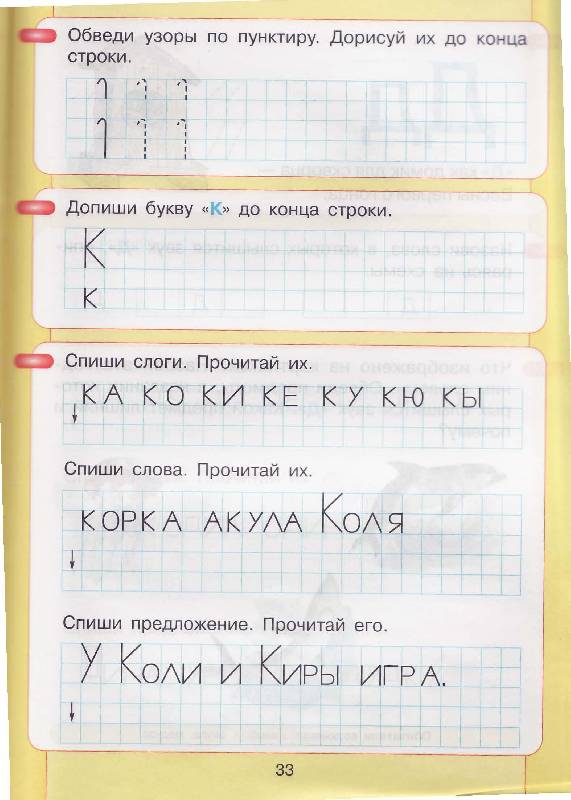 Обведи узоры по пунктиру. Дорисуй их до конца
строки.
Допиши букву «К» до конца строки.
К
к
Спиши слоги. Прочитай их.
КА КО КИ КЕ КУ КЮ КЫ
Спиши слова. Прочитай их.
КОРКА АКУЛА КОЛЯ
Спиши предложение. Прочитай его.
У КОЛИ И КИРЫ ИГРА.
33